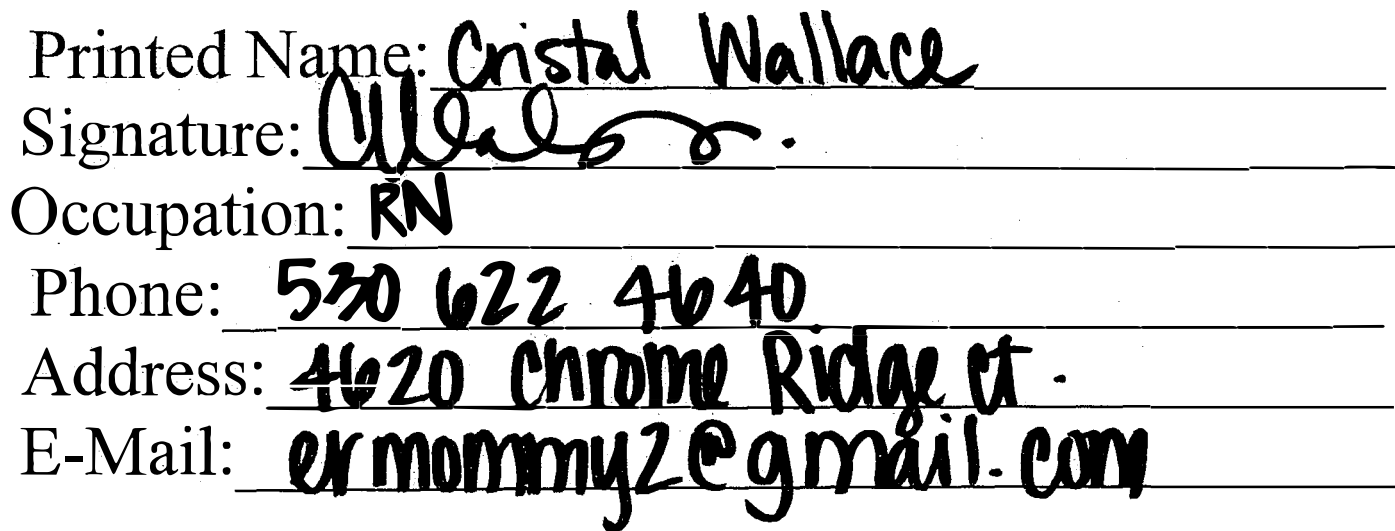 Printed Name: Cristal Wallace
Signature:
Occupation: RN
Phone: 530 622 4640
Address: 4620 Chrome Ridge Ct.
E-Mail: ermommy2@gmail.com